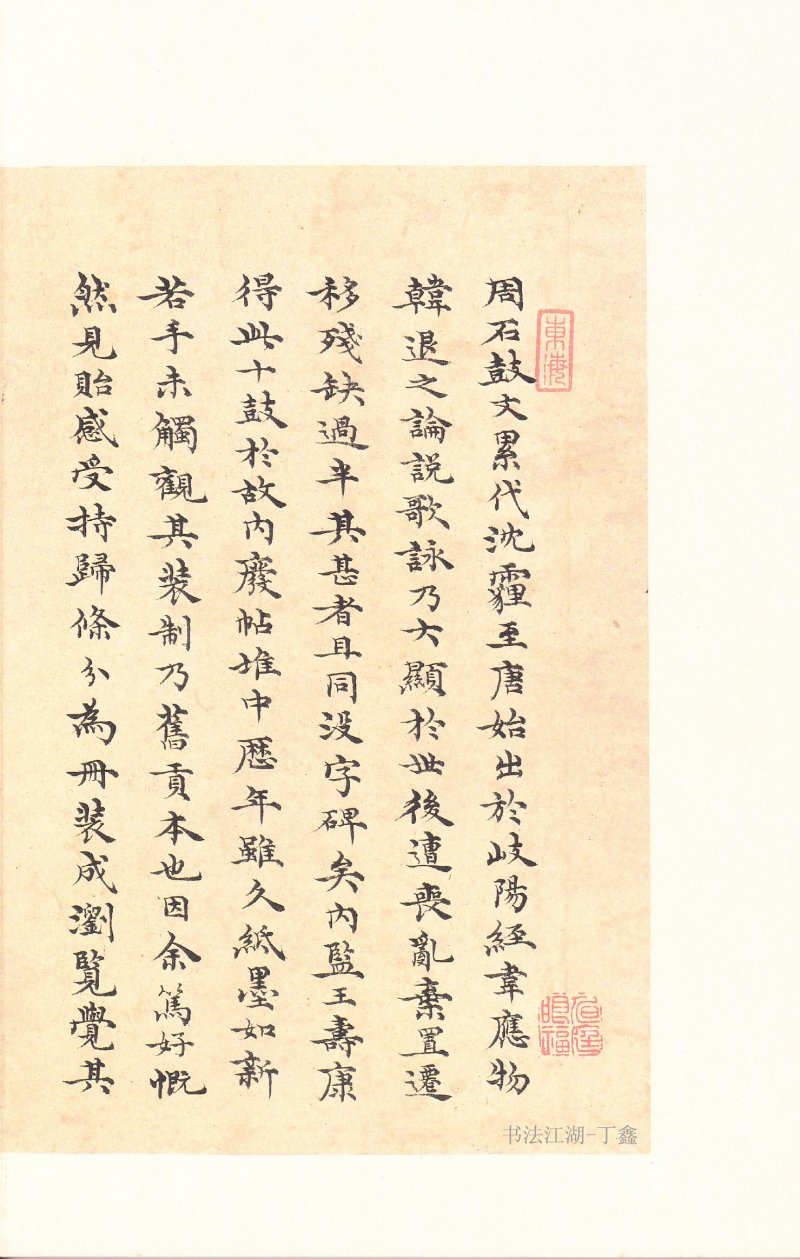 東海
周石鼓文累代沈霾至唐始出於岐陽經韋應物
韓退之論説歌詠乃大顯於世後遭喪亂棄置遷
移殘缺過半其甚者且同没字碑矣内監王壽康
得此十鼓於故内廢帖堆中歷年雖久紙墨如新
若手未觸觀其装制乃舊貢本也因余篤好慨
然見貽感受持歸條分為冊装成瀏覽覺其
书法江湖-丁鑫